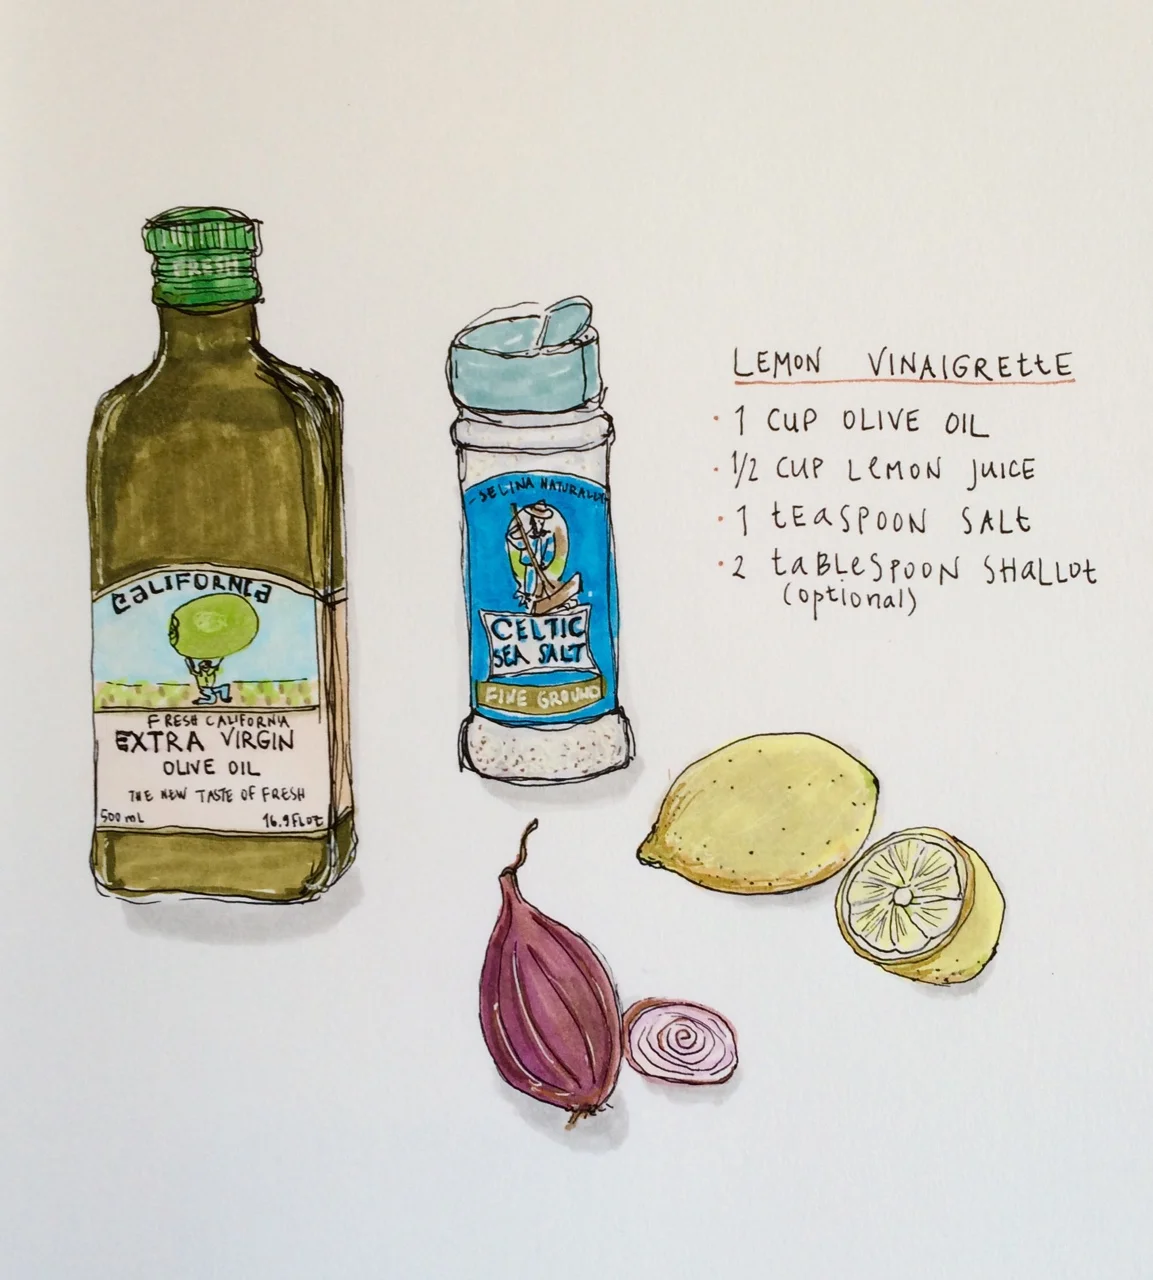 FRESH
CALIFORNIA
FRESH CALIFORNIA
EXTRA VIRGIN
OLIVE OIL
THE NEW TASTE OF FRESH
500 mL
16.9 FLOZ
- SELINA NATURALLY
CELTIC
SEA SALT
FINE GROUND
LEMON VINAIGRETTE
· 1 CUP OLIVE OIL
· 1/2 CUP LEMON JUICE
· 1 tEaSPOON SALt
· 2 taBLeSPOON SHaLLOt
(optional)